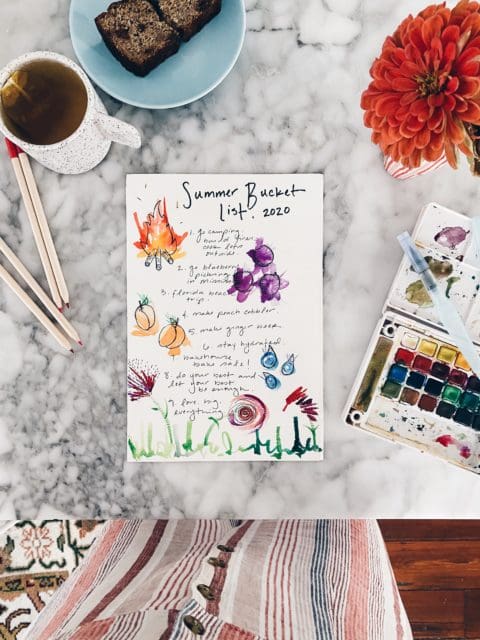 Summer Bucket
List. 2020
1. go camping.
build fires
cook lots
outside.
2. go blueberry
picking
in
3. florida beach
trip.
4. make peach cobbler.
5. make ginger
6. stay hydrated.
bake sale!
8. do your best and
let your best
be enough.
9. love. big.
everything